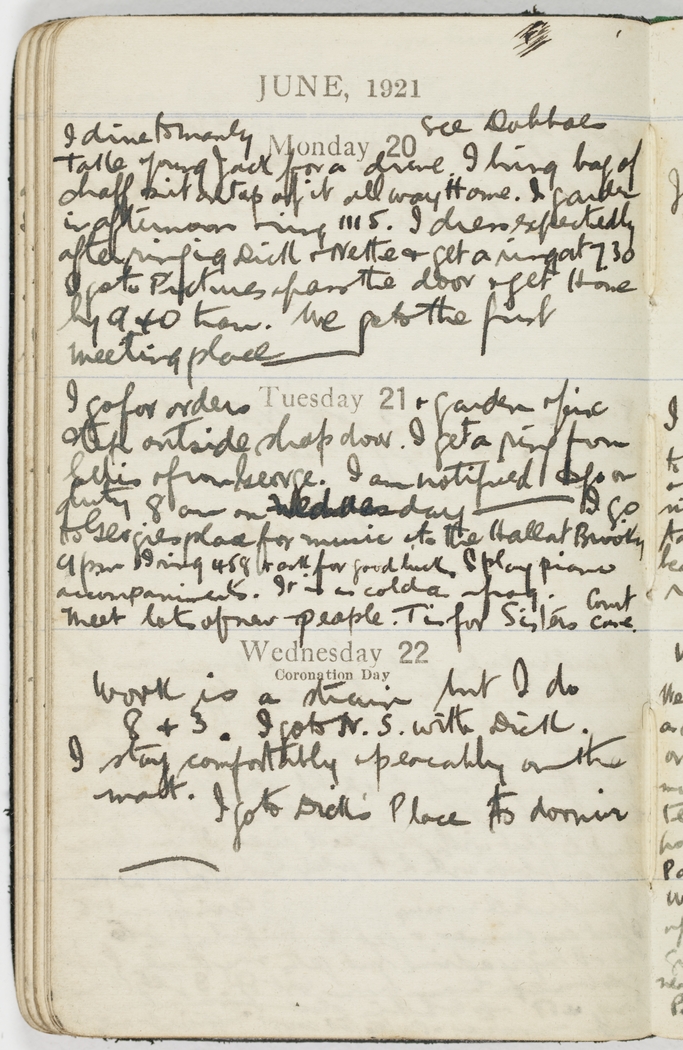 JUNE, 1921
I drive to Manly see
Monday 20
Take young Jack for a drive. I bring bag of
chaff & sit on top of it all way Home. I garden
in afternoon & ring 1115. I dress expectedly
after ringing Dick & Nette & get a ring at 7 30
I go to Pictures & pass the door & get Home
by 9 40 tram. We go to the first
meeting place
I go for orders
Tuesday 21
& garden & fix
step outside shop door. I get a ring from
& from George. I am notified to go on
duty 8 am on Wednesday I go
to Georgies place for music & to the Hall at
9 pm I ring 468 & ask for good luck. I play piano
accompaniments. It is a cold day.
Meet lots of new people. Tis for Sisters Court
case.
Wednesday 22
Coronation Day
Work is a strain but I do
8 & 3. I go to N. S. with Dick.
I stay comfortably & peacably on the
matt.
I go to Dick's Place to